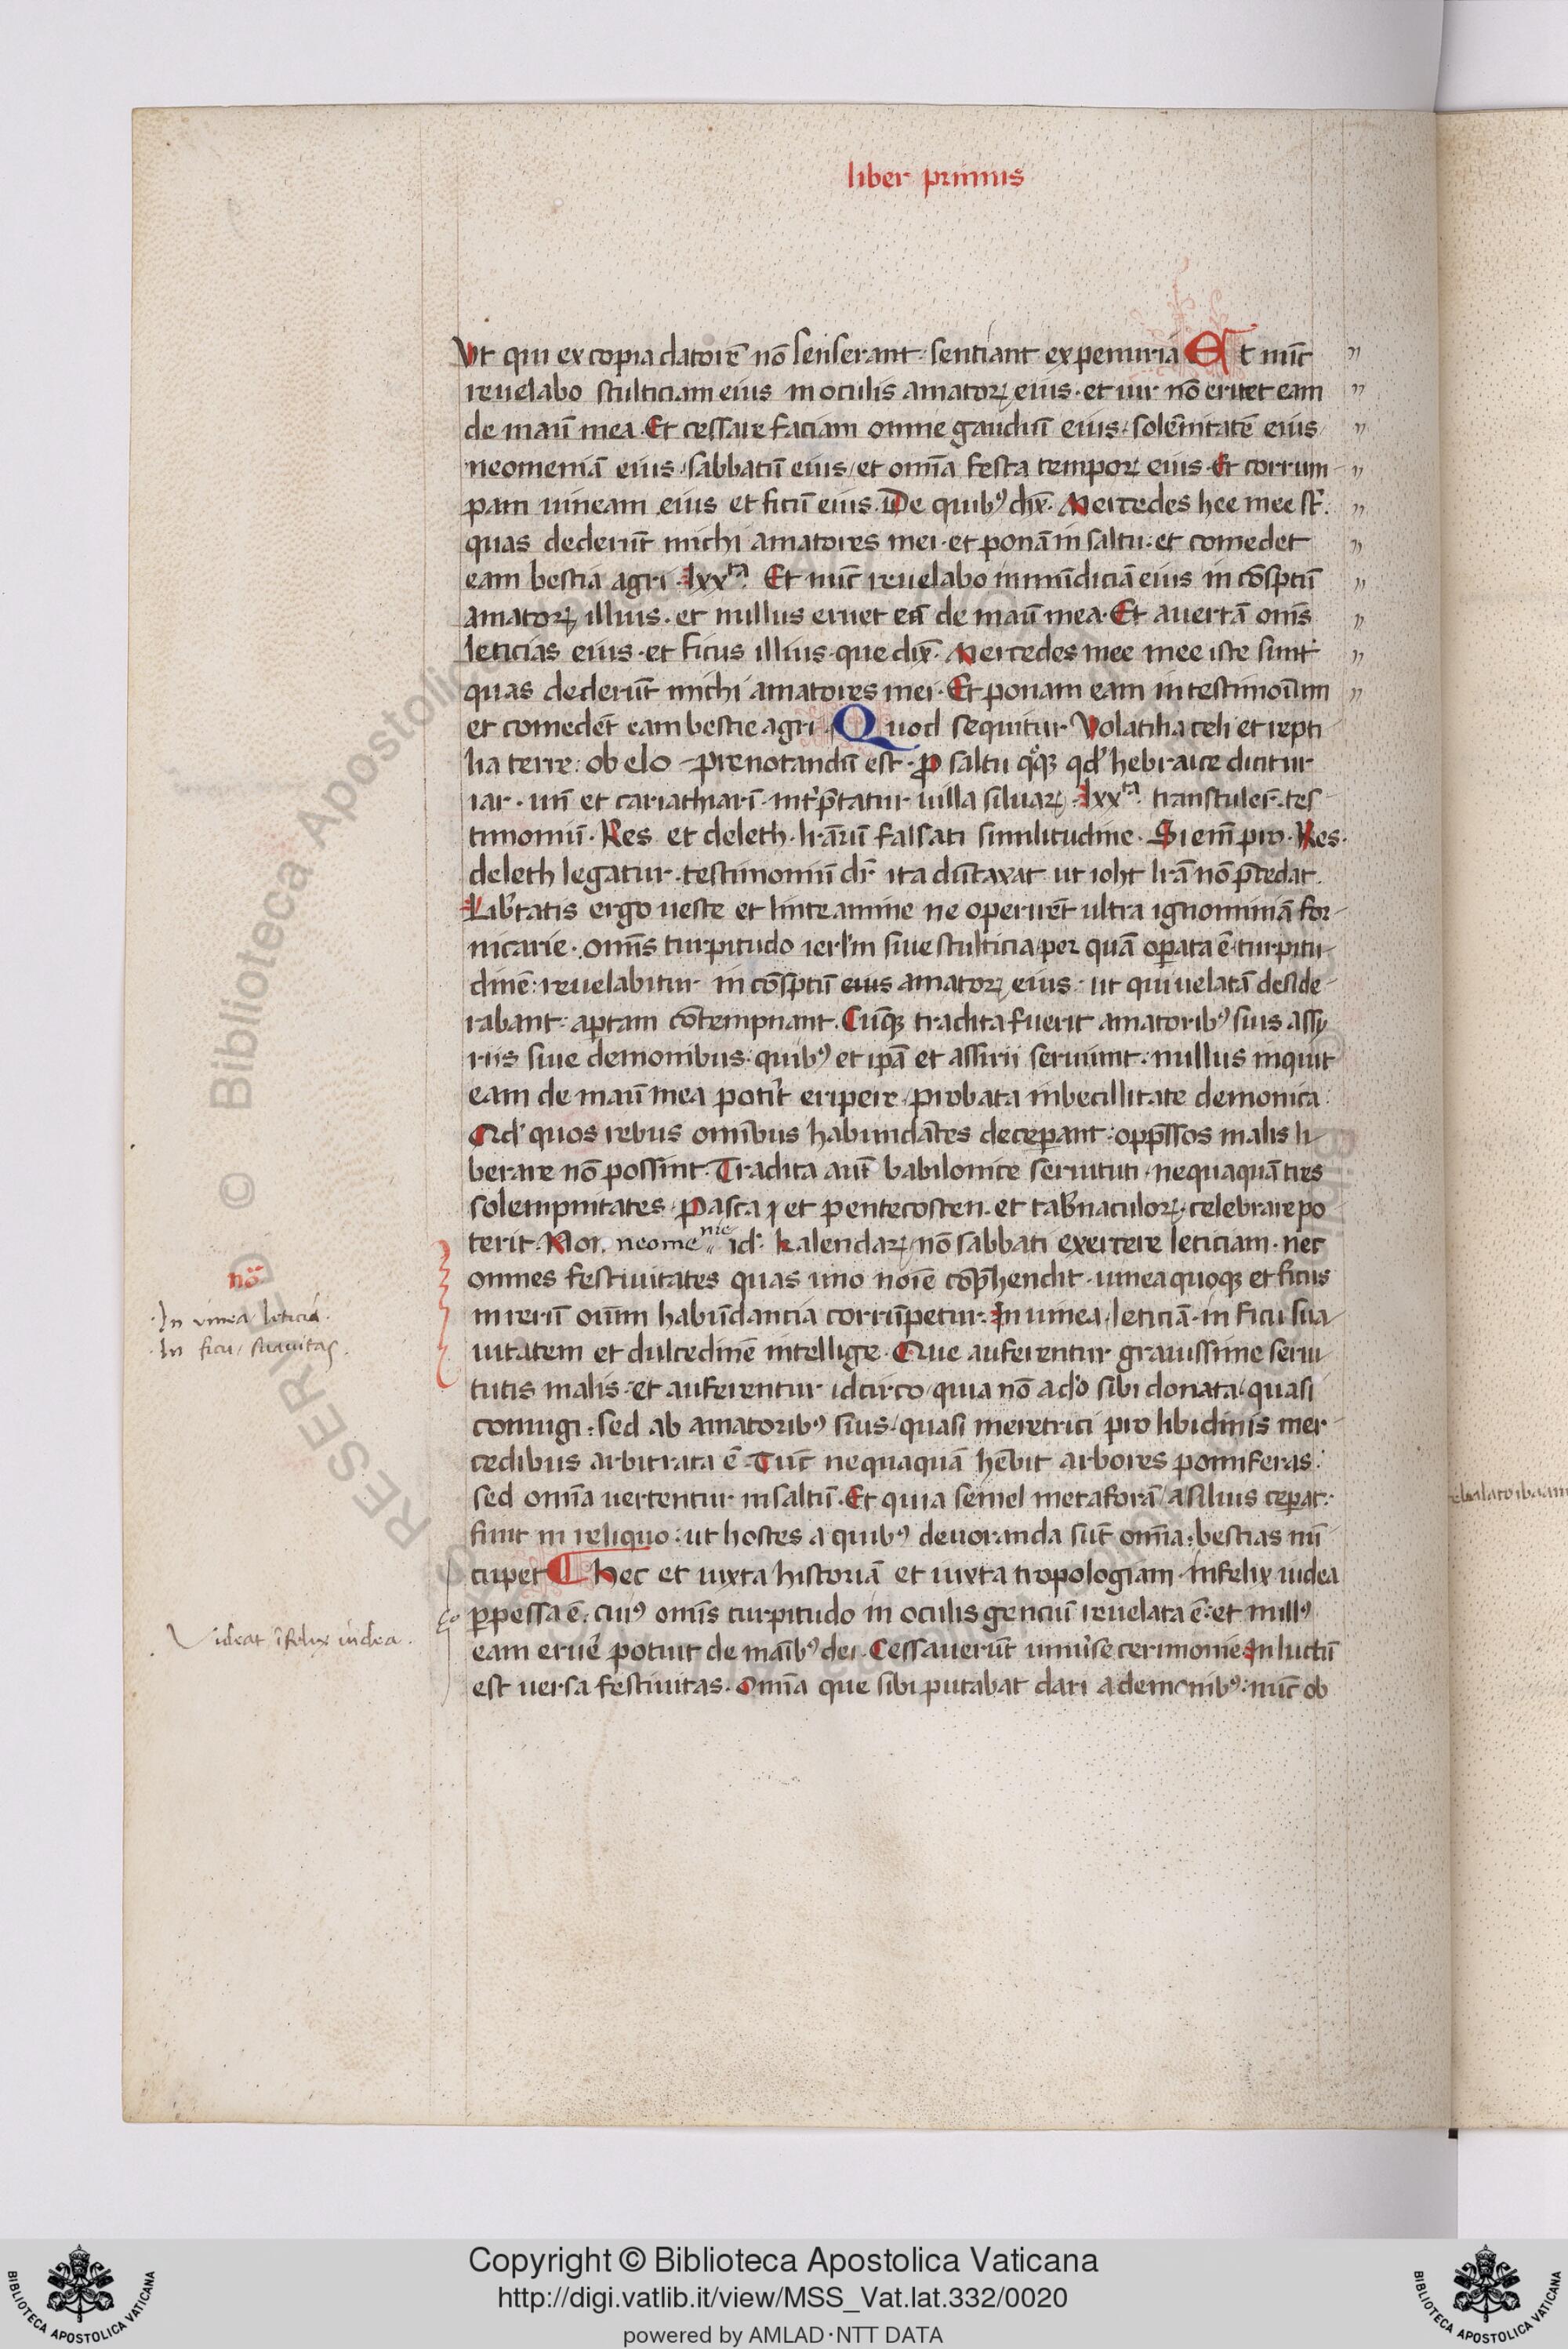 liber primus
Vt qui ex copia datorē nō senserant· sentiant ex penuria Et nūc
reuelabo stulticiam eius in oculis amatoꝝ eius· et uir nō eruet eam
de manū mea· Et cessare faciam omne gaudiū eius/ solēnitatē eius/
neomeniā eius/ sabbatū eius/ et omīa festa tempoꝝ eius· Et corrum-
pam uineam eius et ficū eius· De quibꝰ dix̄· Mercedes hee mee st̄·
quas dederūt michi amatores mei· et ponā in saltu· et comedet
eam bestia agri· lxxᵗᵃ· Et nūc reuelabo inmūdiciā eius in cōspctū
amatoꝝ illius· et nullus eruet eā de manū mea· Et auertā oms̄
leticias eius· et ficus illius· que dix̄· Mercedes mee mee iste sunt
quas dederūt michi amatores mei· Et ponam eam in testimoīum
et comedēt eam bestie agri· Quod sequitur Volatilia celi et repti
lia terre: obelo prenotandū est· ꝓ saltu qͦqꝫ qd' hebraice dicitur
iar· uñ et cariathiarī· int'p̄tatur uilla siluaꝝ· lxxᵗᵃ· transtuler̄· tes
timoniū· Res et deleth· lr̄arū falsati similitudine· Si em̄ pro· Res·
deleth legatur· testimoniū dr̄ ita dūtaxat ut ioht lr̄a nō p̄cedat·
Lib'tatis ergo ueste et linteamine ne operirēt ultra ignominiā for-
nicarie· oms̄ turpitudo ierl'm siue stulticia/ per quā opata ē turpitu-
dinē: reuelabitur in cōspctū eius amatoꝝ eius· ut qui uelatā deside-
rabant· aptam cōtempnant· Cūqꝫ tradita fuerit amatoribꝰ suis assy
riis siue demonibus· quibꝰ et ip̄a et assirii seruiunt· nullus inquit
eam de manū mea pot'it eripere/ probata inbecillitate demonica·
Qd' quos rebus omībus habundātes deceperant· opp̄ssos malis li-
berare nō possint· Tradita aut̄ babilonice seruituti· nequaquā tres
solempnitates/ Pasca ⁊ et pentecosten· et tab'naculoꝝ· celebrare po
terit· Non neomenie id· kalendaꝝ/ nō sabbati exercere leticiam· nec
omnes festiuitates quas uno noīe cōp̄hendit· uinea quoqꝫ et ficus
in rerū oīum habūdancia corrūpetur· In uinea/ leticiā· in ficu sua
uitatem et dulcedinē intellige· Que auferentur grauissime serui-
tutis malis· et auferentur idcirco/ quia nō a do sibi donata· quasi
coniugi· sed ab amatoribꝰ suis/ quasi meretrici pro libidinis mer-
cedibus arbitrata ē· Tūc nequaquā hēbit arbores pomiferas·
sed omīa uertentur in saltū· Et quia semel metaforā/ a siluis ceperat·
fiunt in reliquo· ut hostes a quibꝰ deuoranda sūt omīa· bestias nū
cupet hec et iuxta historiā et iuxta tropologiam· infelix iudea
ꝑpessa ē· cuiꝰ oms̄ turpitudo in oculis genciū reuelata ē· et nullꝰ
eam eruē potuit de manībꝰ dei· Cessauerūt uniu'se cerimonie In luctū
est uersa festiuitas· Omīa que sibi putabat dari a demonibꝰ· nūc ob
nō
·In vinea/ leticia·
·In ficu/ suauitas·
Videat īfelix iudea·
Copyright © Biblioteca Apostolica Vaticana
http://digi.vatlib.it/view/MSS_Vat.lat.332/0020
powered by AMLAD·NTT DATA
BIBLIOTECA APOSTOLICA VATICANA
BIBLIOTECA APOSTOLICA VATICANA